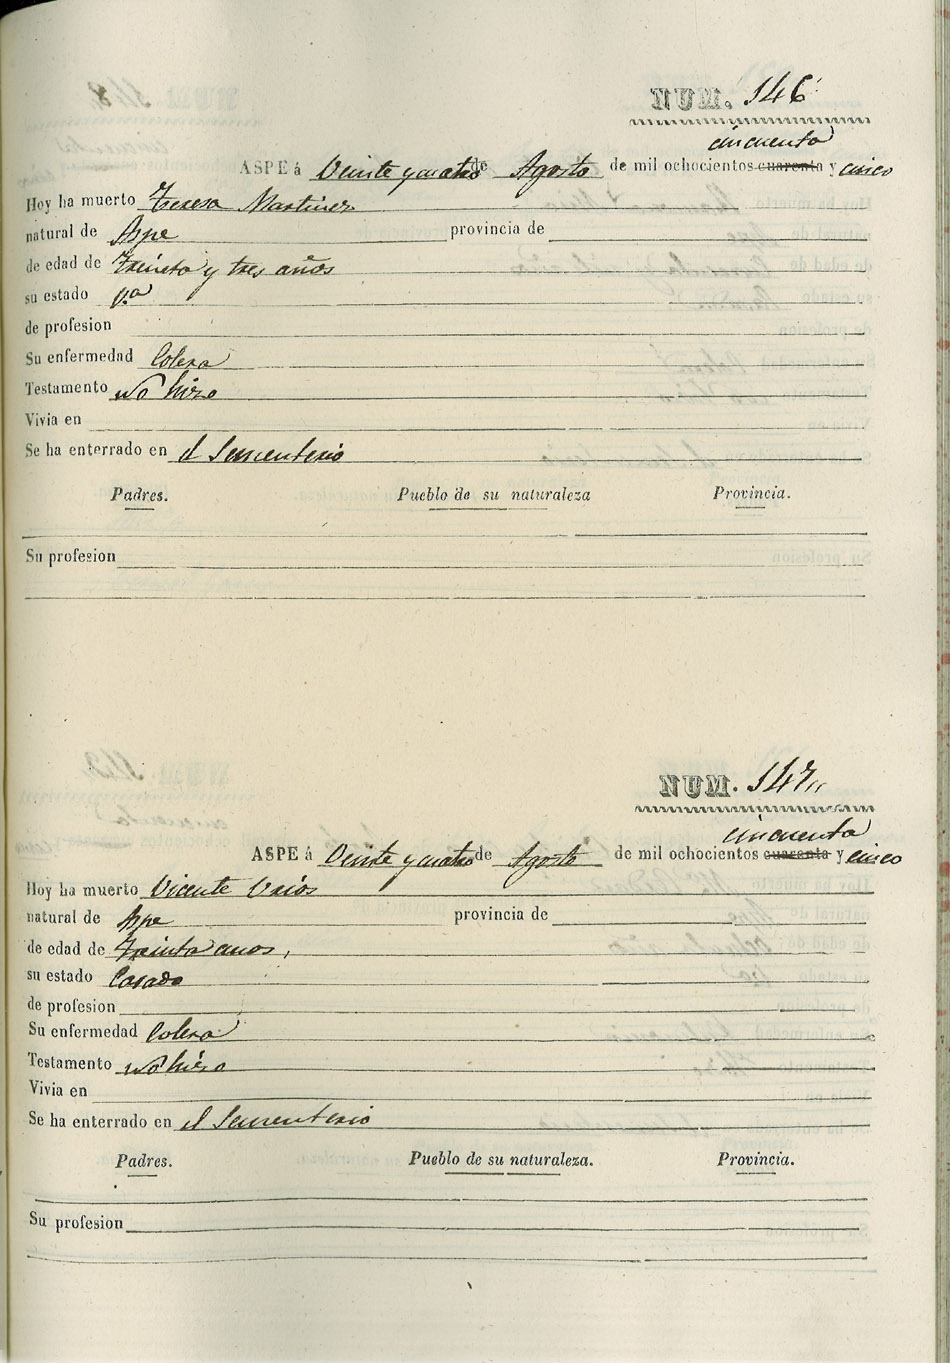 NUM. 146
cincuenta
ASPE á Veinte y cuatro de Agosto de mil ochocientos cuarenta y cinco
Hoy ha muerto Teresa Martinez
natural de Aspe provincia de
de edad de Treinta y tres años
su estado
de profesion
Su enfermedad Colera
Testamento No hizo
Vivia en
Se ha enterrado en el Sementerio
Padres. Pueblo de su naturaleza Provincia.
Su profesion
NUM. 147
cincuenta
ASPE á Veinte y cuatro de Agosto de mil ochocientos cuarenta y cinco
Hoy ha muerto Vicente
natural de Aspe provincia de
de edad de Treinta anos,
su estado Casado
de profesion
Su enfermedad Colera
Testamento No hizo
Vivia en
Se ha enterrado en el Sementerio
Padres. Pueblo de su naturaleza. Provincia.
Su profesion